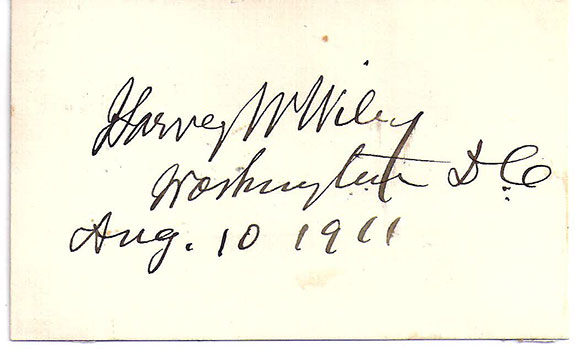 Harvey W Wiley
Washington D.C.
Aug. 10 1911